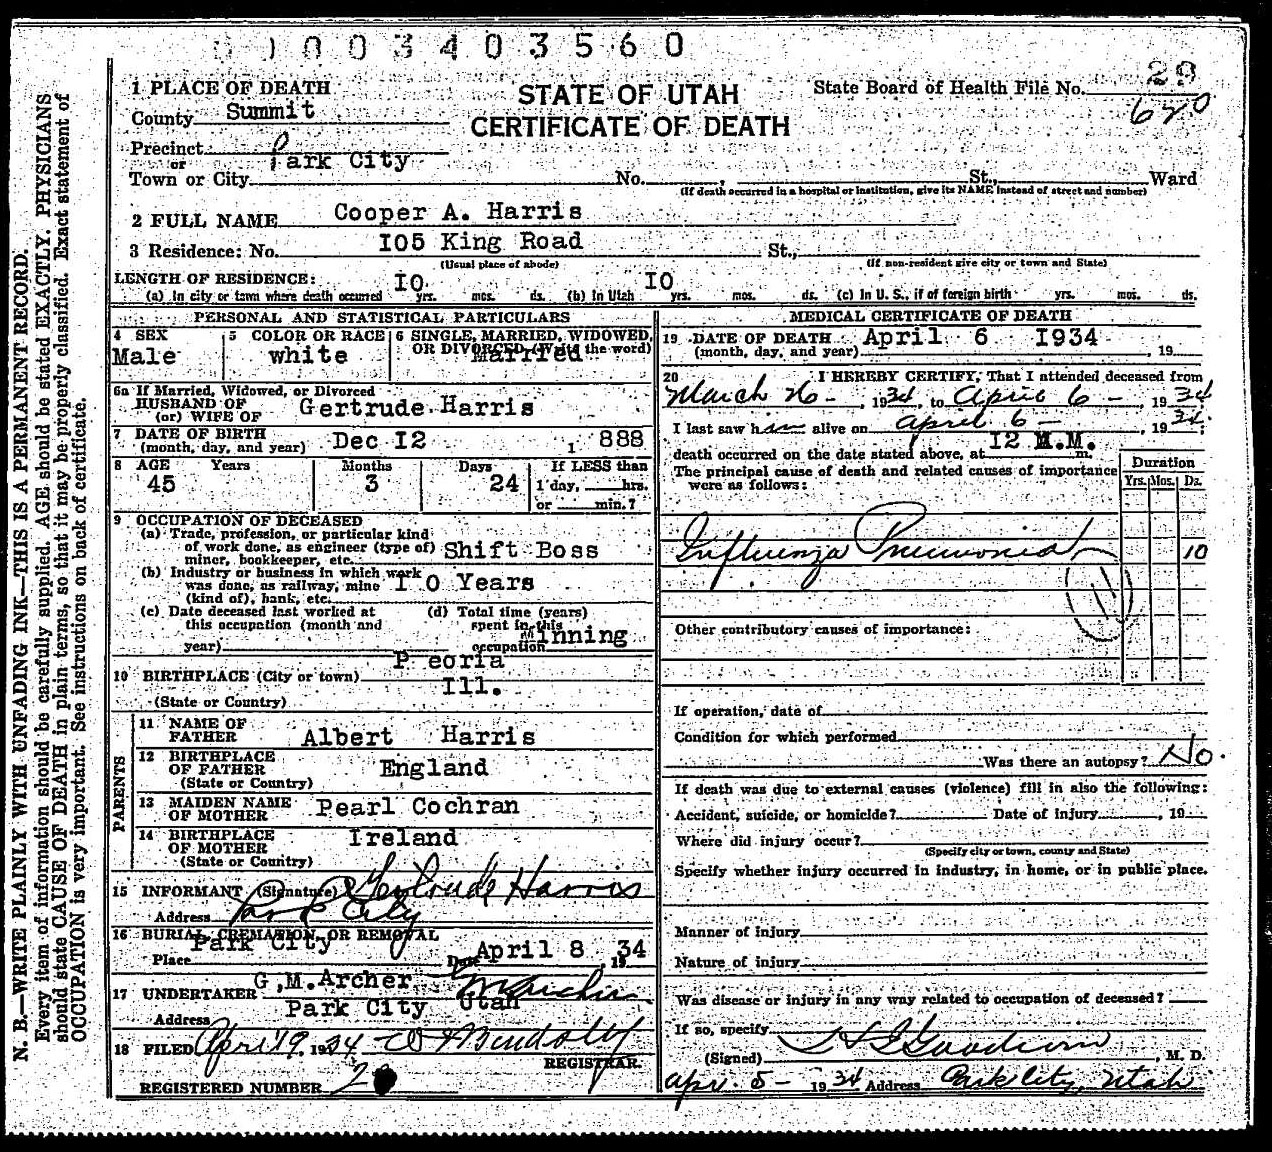 0 1 0 0 3 4 0 3 5 6 0
N. B.—WRITE PLAINLY WITH UNFADING INK—THIS IS A PERMANENT RECORD.
Every item of information should be carefully supplied. AGE should be stated EXACTLY. PHYSICIANS
should state CAUSE OF DEATH in plain terms, so that it may be properly classified. Exact statement of
OCCUPATION is very important. See instructions on back of certificate.
STATE OF UTAH
CERTIFICATE OF DEATH
State Board of Health File No. 29
620
1 PLACE OF DEATH
County Summit
Precinct
or Park City
Town or City No. , St., Ward
(If death occurred in a hospital or institution, give its NAME instead of street and number)
2 FULL NAME Cooper A. Harris
3 Residence: No. I05 King Road St.,
(Usual place of abode) (If non-resident give city or town and State)
LENGTH OF RESIDENCE:
(a) In city or town where death occurred I0 yrs. mos. ds. (b) In Utah I0 yrs. mos. ds. (c) In U. S., if of foreign birth yrs. mos. ds.
PERSONAL AND STATISTICAL PARTICULARS
4 SEX Male
5 COLOR OR RACE white
6 SINGLE, MARRIED, WIDOWED,
OR DIVORCED (Write the word) Married
6a If Married, Widowed, or Divorced
HUSBAND OF
(or) WIFE OF Gertrude Harris
7 DATE OF BIRTH
(month, day, and year) Dec I2 , 1 888
8 AGE Years Months Days If LESS than
45 3 24 1 day, hrs.
or min.?
9 OCCUPATION OF DECEASED
(a) Trade, profession, or particular kind
of work done, as engineer (type of) Shift Boss
miner, bookkeeper, etc.
(b) Industry or business in which work
was done, as railway, mine I 0 Years
(kind of), bank, etc.
(c) Date deceased last worked at
this occupation (month and
year)
(d) Total time (years)
spent in this
occupation Minning
10 BIRTHPLACE (City or town) P eoria
(State or Country) Ill.
PARENTS
11 NAME OF
FATHER Albert Harris
12 BIRTHPLACE
OF FATHER England
(State or Country)
13 MAIDEN NAME
OF MOTHER Pearl Cochran
14 BIRTHPLACE
OF MOTHER Ireland
(State or Country)
15 INFORMANT (Signature) Gertrude Harris
Address Park City
16 BURIAL, CREMATION, OR REMOVAL
Place Park City Date April 8 19 34
17 UNDERTAKER G.M.Archer
Address Park City Utah
18 FILED April 9, 1934
REGISTRAR.
REGISTERED NUMBER 2
MEDICAL CERTIFICATE OF DEATH
19 DATE OF DEATH April 6 I934
(month, day, and year) , 19
20 I HEREBY CERTIFY, That I attended deceased from
March 26 - , 1934, to April 6 - , 1934
I last saw him alive on April 6 - , 1934;
death occurred on the date stated above, at I2 M.M. m.
The principal cause of death and related causes of importance
were as follows:
Duration
Yrs. Mos. Ds.
Influenza Pneumonia 10
11
Other contributory causes of importance:
If operation, date of
Condition for which performed
Was there an autopsy? No.
If death was due to external causes (violence) fill in also the following:
Accident, suicide, or homicide? Date of injury , 19
Where did injury occur?
(Specify city or town, county and State)
Specify whether injury occurred in industry, in home, or in public place.
Manner of injury
Nature of injury
Was disease or injury in any way related to occupation of deceased?
If so, specify
(Signed) , M. D.
Apr. 8 - 1934 Address Park City, Utah